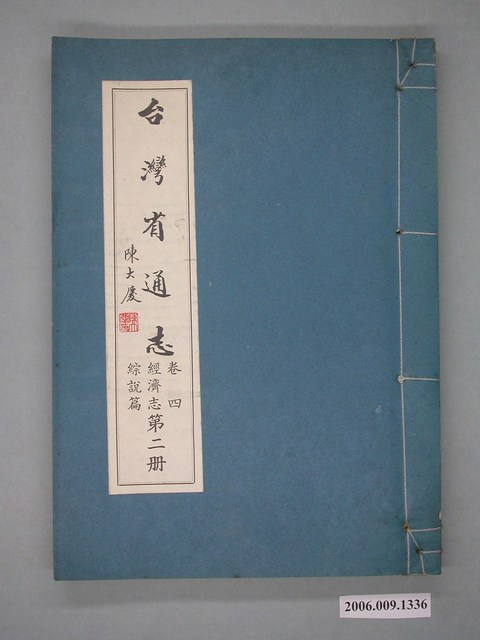 台灣省通志
陳大慶
卷四
經濟志第二册
綜說篇
2006.009.1336